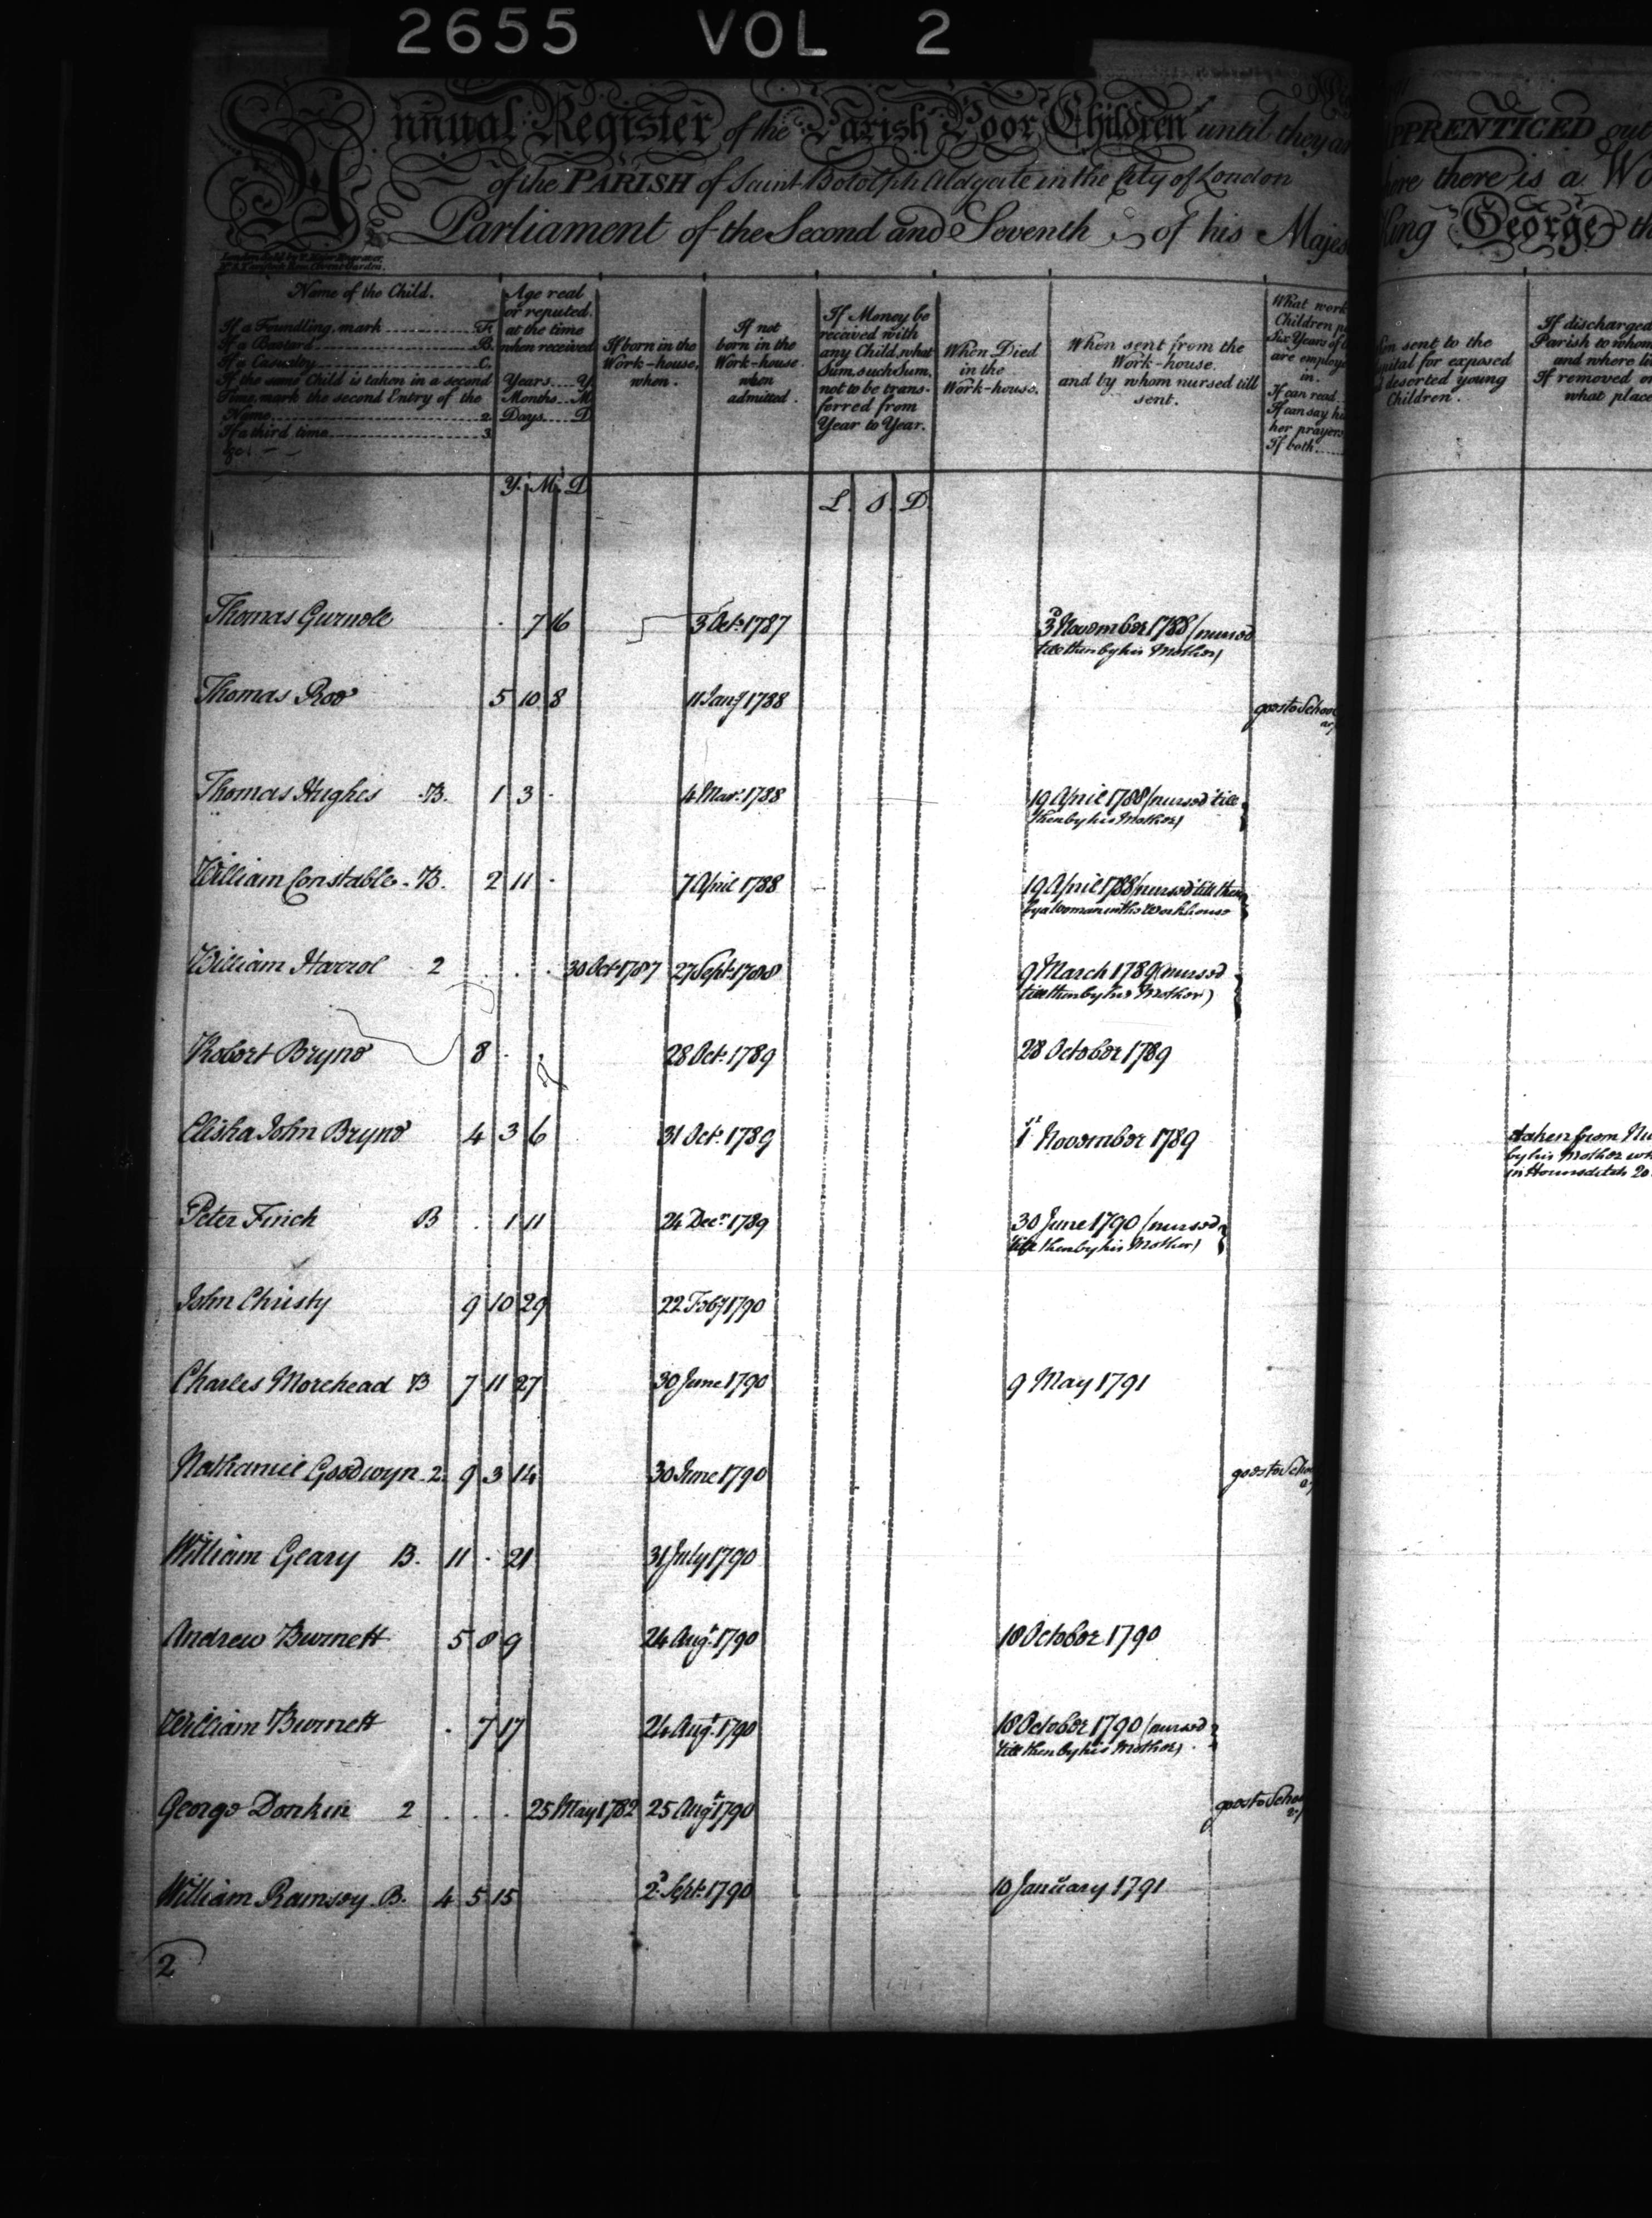 2655 VOL 2
Annual Register of the Parish Poor Children until they are
of the PARISH of Saint Botolph Aldgate in the City of London
Parliament of the Second and Seventh of his Majes
APPRENTICED out
there there is a Wo
King George th
Name of the Child.
If a Foundling, mark F.
If a Bastard B.
If a Casualty C.
If the same Child is taken in a second
Time, mark the second Entry of the
Name 2.
If a third time 3.
&c.
Age real
or reputed
at the time
when received
Years Y.
Months M.
Days D.
If born in the
Work-house,
when.
If not
born in the
Work-house
when
admitted.
If Money be
received with
any Child, what
Sum, such Sum,
not to be trans-
ferred from
Year to Year.
When Died
in the
Work-house.
When sent from the
Work-house.
and by whom nursed till
sent.
What work
Children
Six Years of
are employ
in.
If can read
If can say his
her prayers
If both
sent to the
Hospital for exposed
deserted young
Children.
If discharged
Parish to whom
and where
If removed
what place
Y. M. D
L. S. D.
Thomas Gurnole . 7 16 3 Oct. 1787 3 November 1788 (nursed
till then by his Mother)
Thomas Roo 5 10 8 11 Jany 1788 goes to School
Thomas Hughes B. 1 3 . 4 Mar. 1788 19 April 1788 (nursed till
then by his Mother)
William Constable B. 2 11 . 7 April 1788 19 April 1788 (nursed till then
by a Woman in the Workhouse
William Harrol 2 . . . 30 Oct. 1787 27 Sept. 1788 9 March 1789 (nursed
till then by his Mother)
Robert Bryno 8 . . 28 Oct. 1789 28 October 1789
Elisha John Bryno 4 3 6 31 Oct. 1789 1st November 1789
taken from Nu
by his Mother
in Houndsditch 20
Peter Finch B . 1 11 24 Decr 1789 30 June 1790 (nursed
till then by his Mother)
John Christy 9 10 29 22 Feby 1790
Charles Morehead B 7 11 27 30 June 1790 9 May 1791
Nathaniel Goodwyn 2. 9 3 14 30 June 1790 goes to Scho
William Geary B. 11 . 21 31 July 1790
Andrew Burnett 5 8 9 24 Augt. 1790 18 October 1790
William Burnett . 7 17 24 Augt. 1790 18 October 1790 (nursed
till then by his Mother)
George Donkin 2 . . . 25 May 1782 25 Augt 1790 goes to Scho
William Ramsey B. 4 5 15 2d Sept. 1790 10 January 1791
2